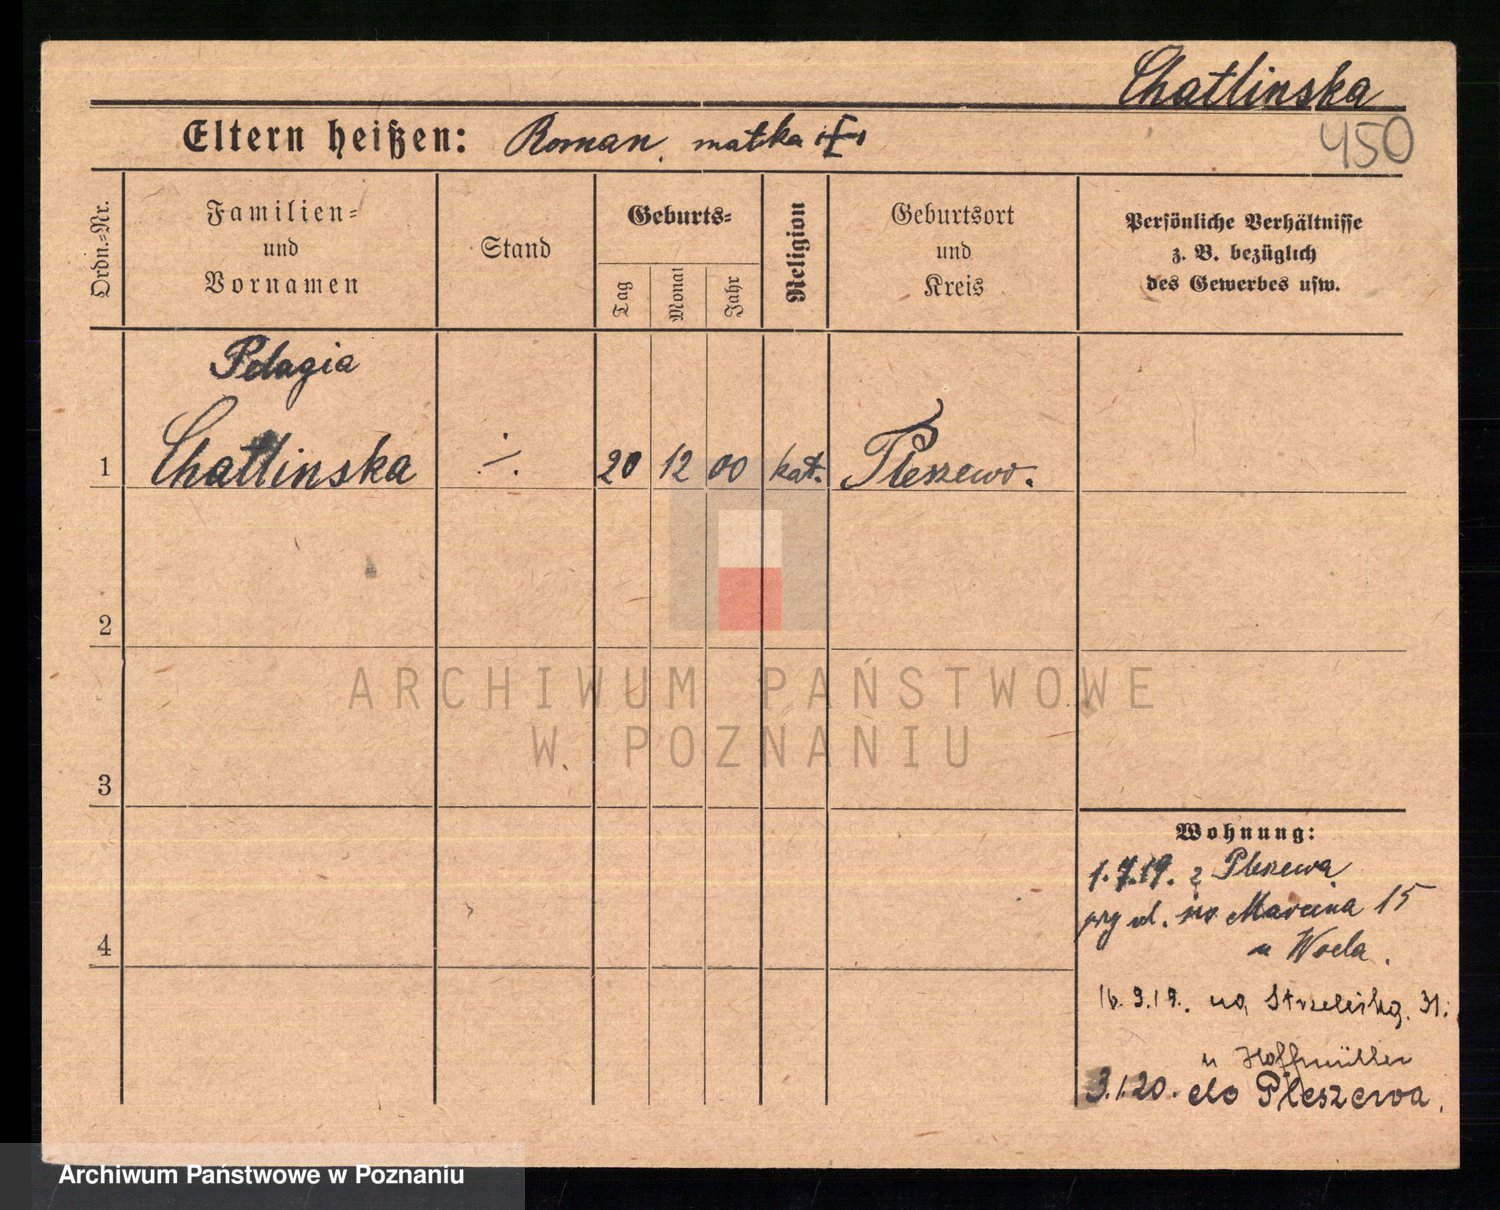 Chatlinska
450
Eltern heißen: Roman, matka
Ordn.-Nr.
Familien-
und
Vornamen
Stand
Geburts-
Tag
Monat
Jahr
Religion
Geburtsort
und
Kreis
Persönliche Verhältnisse
z. B. bezüglich
des Gewerbes usw.
Pelagia
1 Chatlinska ·/. 20 12 00 kat. Pleszewo.
2
3
4
ARCHIWUM PAŃSTWOWE
W POZNANIU
Wohnung:
1.7.19. z Pleszewa
Marcina 15
u Woela.
16.9.19. na Strzelecką. 31.
u Hoffmüller
3.1.20. do Pleszewa.
Archiwum Państwowe w Poznaniu